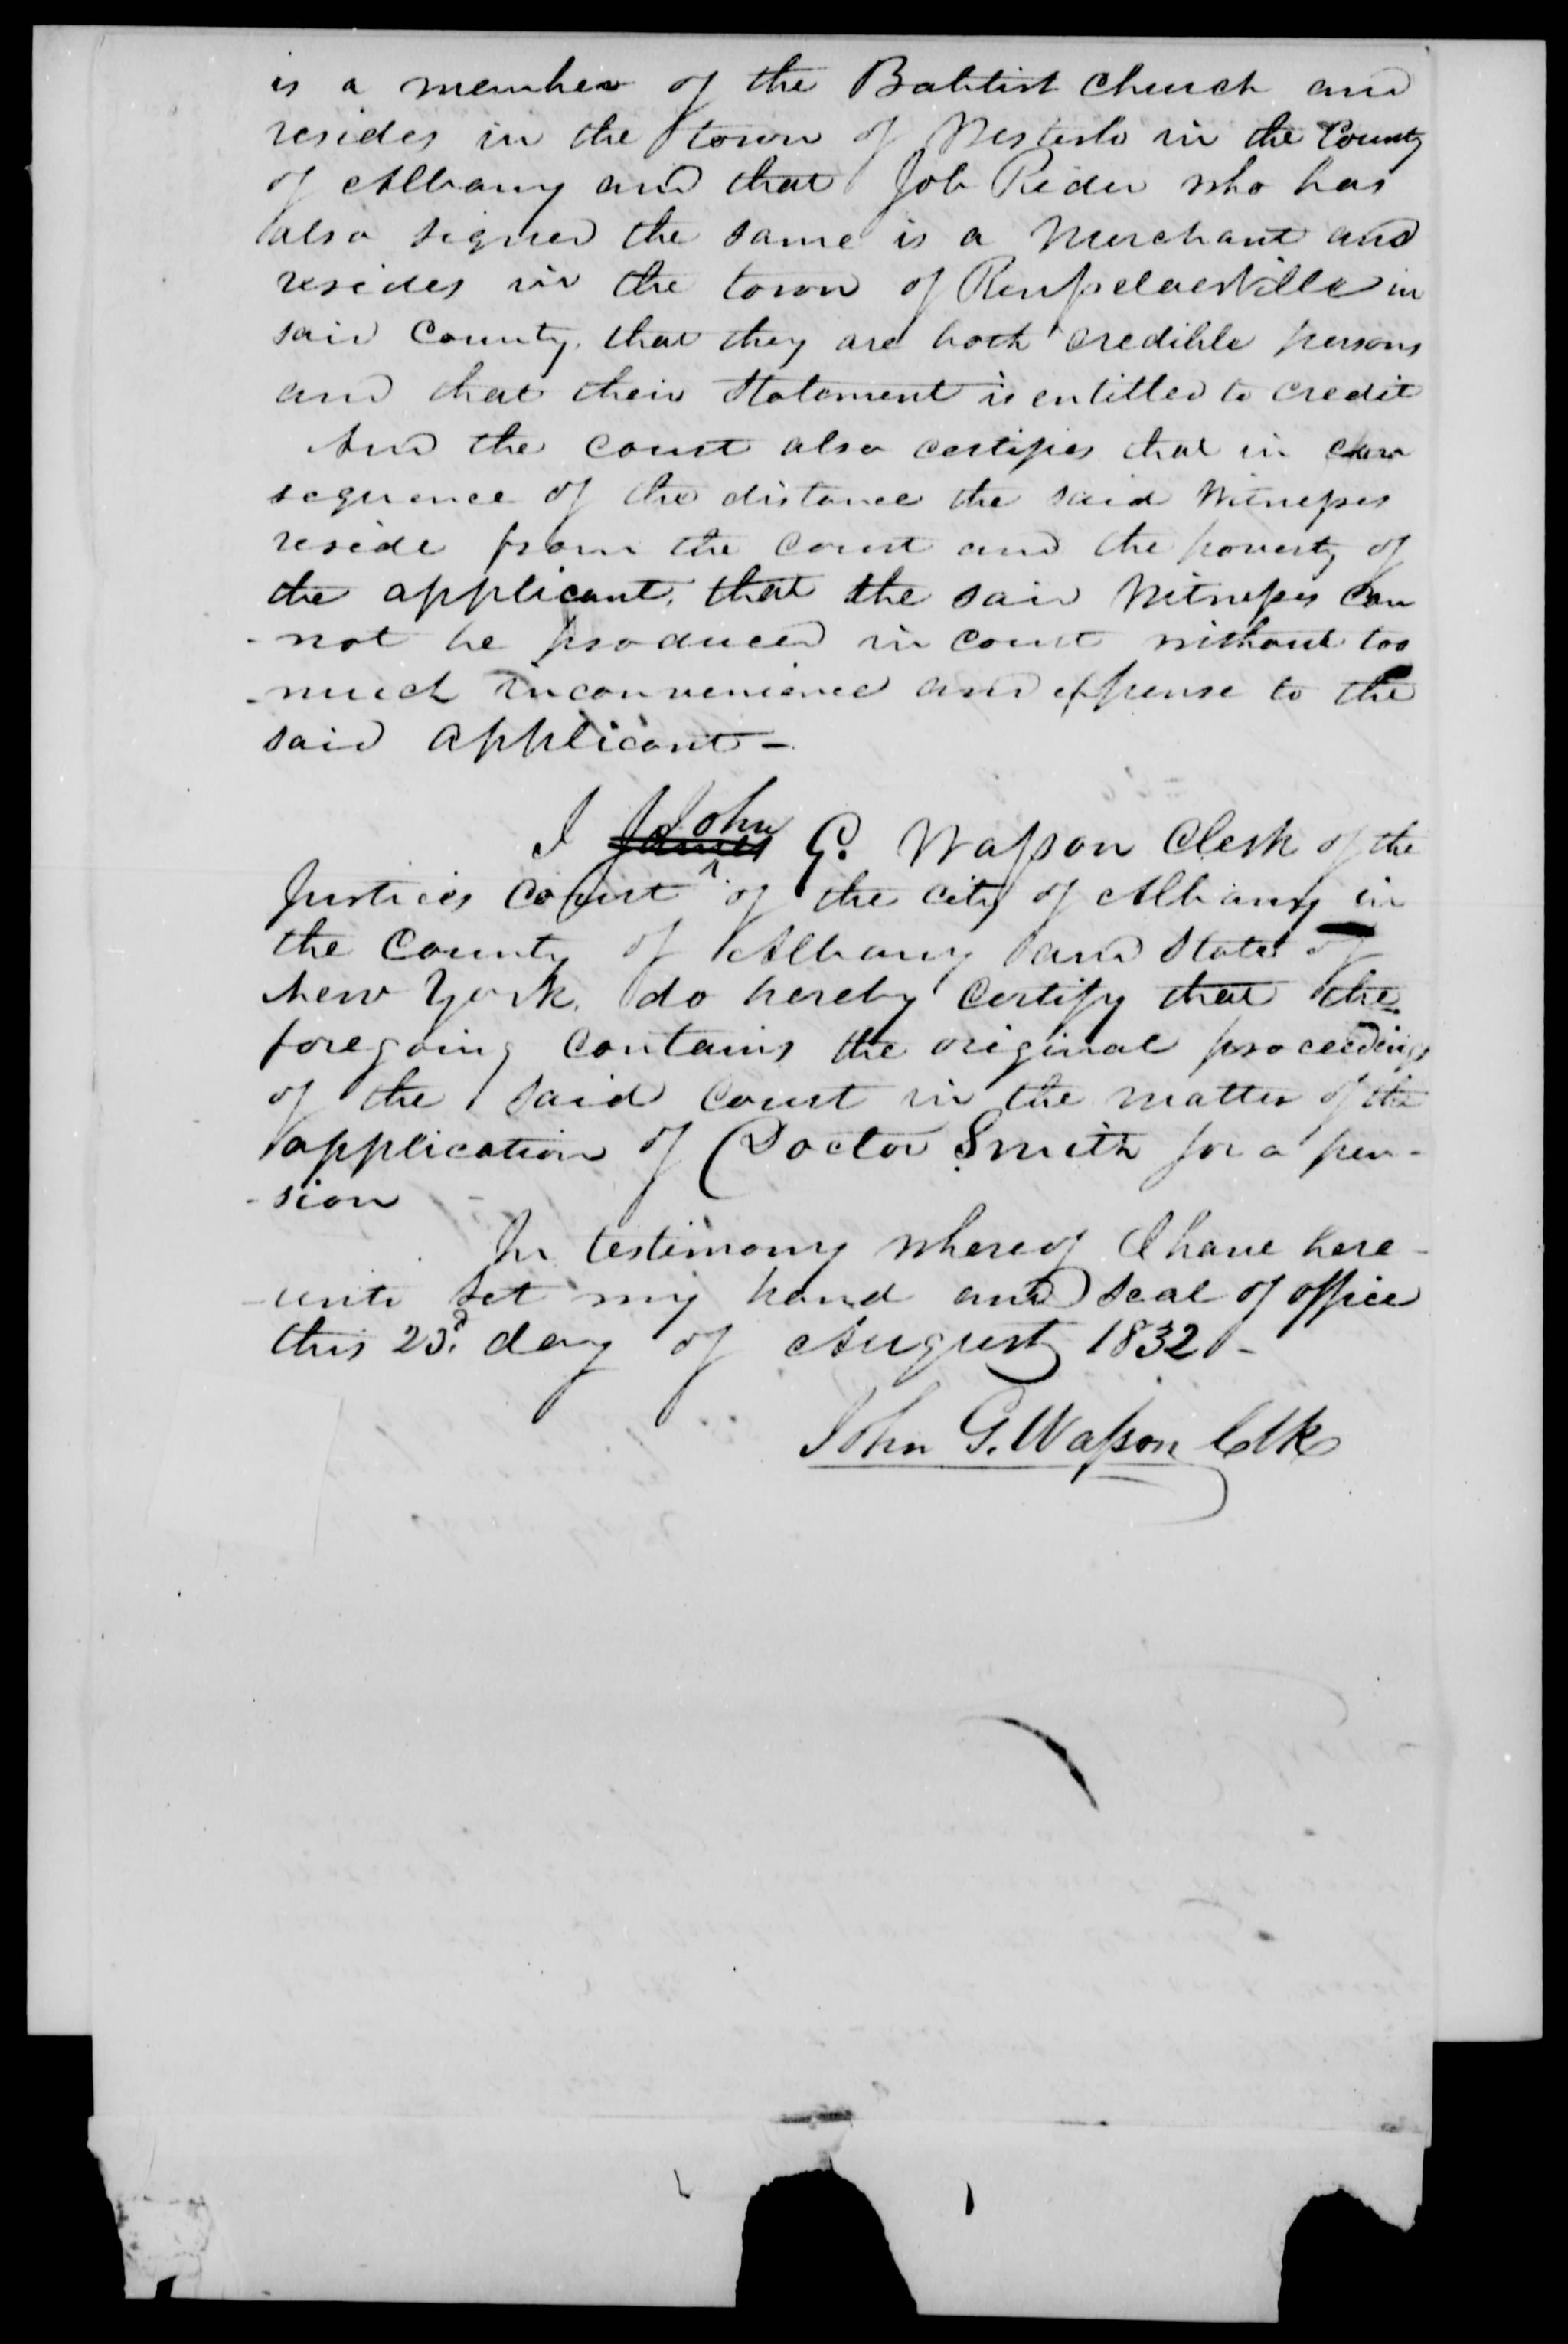 is a member of the Babtist Church and
resides in the town of Westerlo in the County
of Albany and that Job Rider who has
also signed the same is a Merchant and
resides in the town of Rensselaerville in
said County, that they are both credible persons
and that their statement is entitled to credit
And the court also certifies that in con
sequence of the distance the said Witnesses
reside from the court and the poverty of
the applicant, that the said Witnesses can
-not be produced in court without too
-much inconvenience and expense to the
said applicant-
John
I James G. Wasson Clerk of the
Justices Court of the city of Albany in
the County of Albany and State of
New York, do hereby certify that the
foregoing contains the original proceedings
of the said court in the matter of the
application of Doctor Smith for a pen-
-sion
In testimony whereof I have here-
-unto set my hand and seal of office
this 23d. day of August 1832-
John G. Wasson Clk